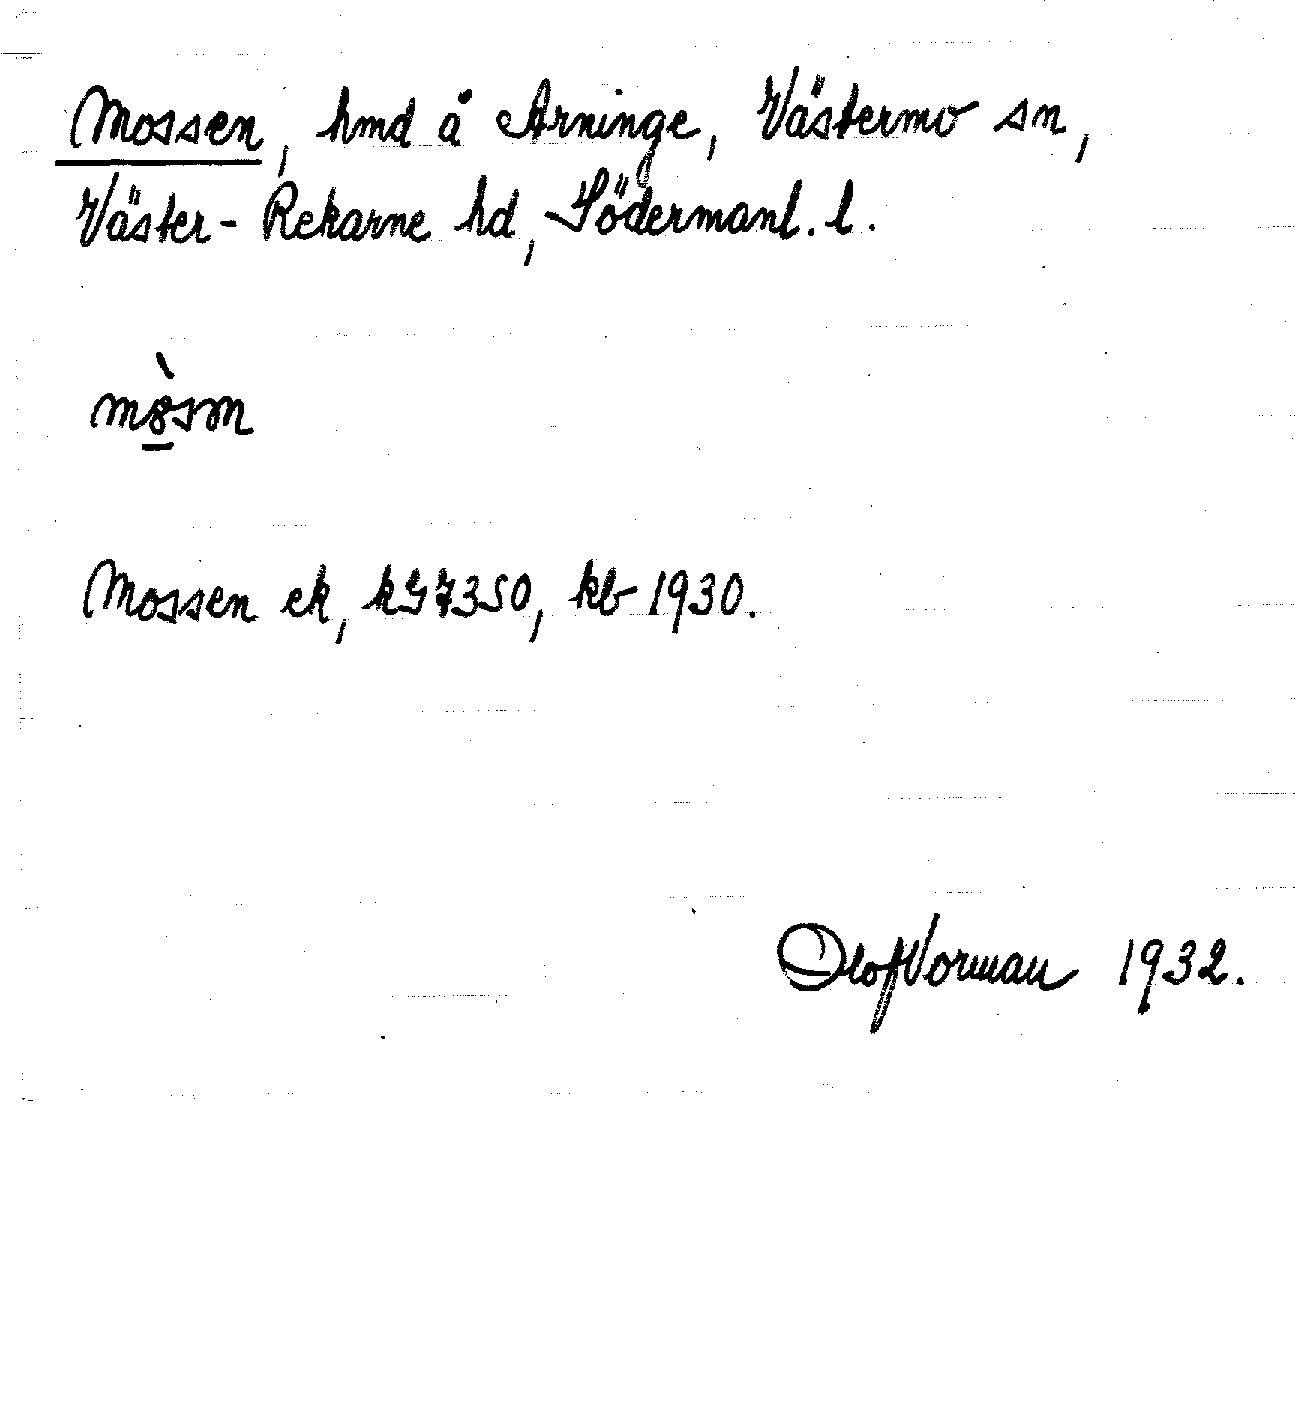 Mossen, hmd å Arninge, Västermo sn,
Väster-Rekarne hd, Södermanl. l.
mò̱sm
Mossen ek, kG7350, kb 1930.
Olof Vorman 1932.